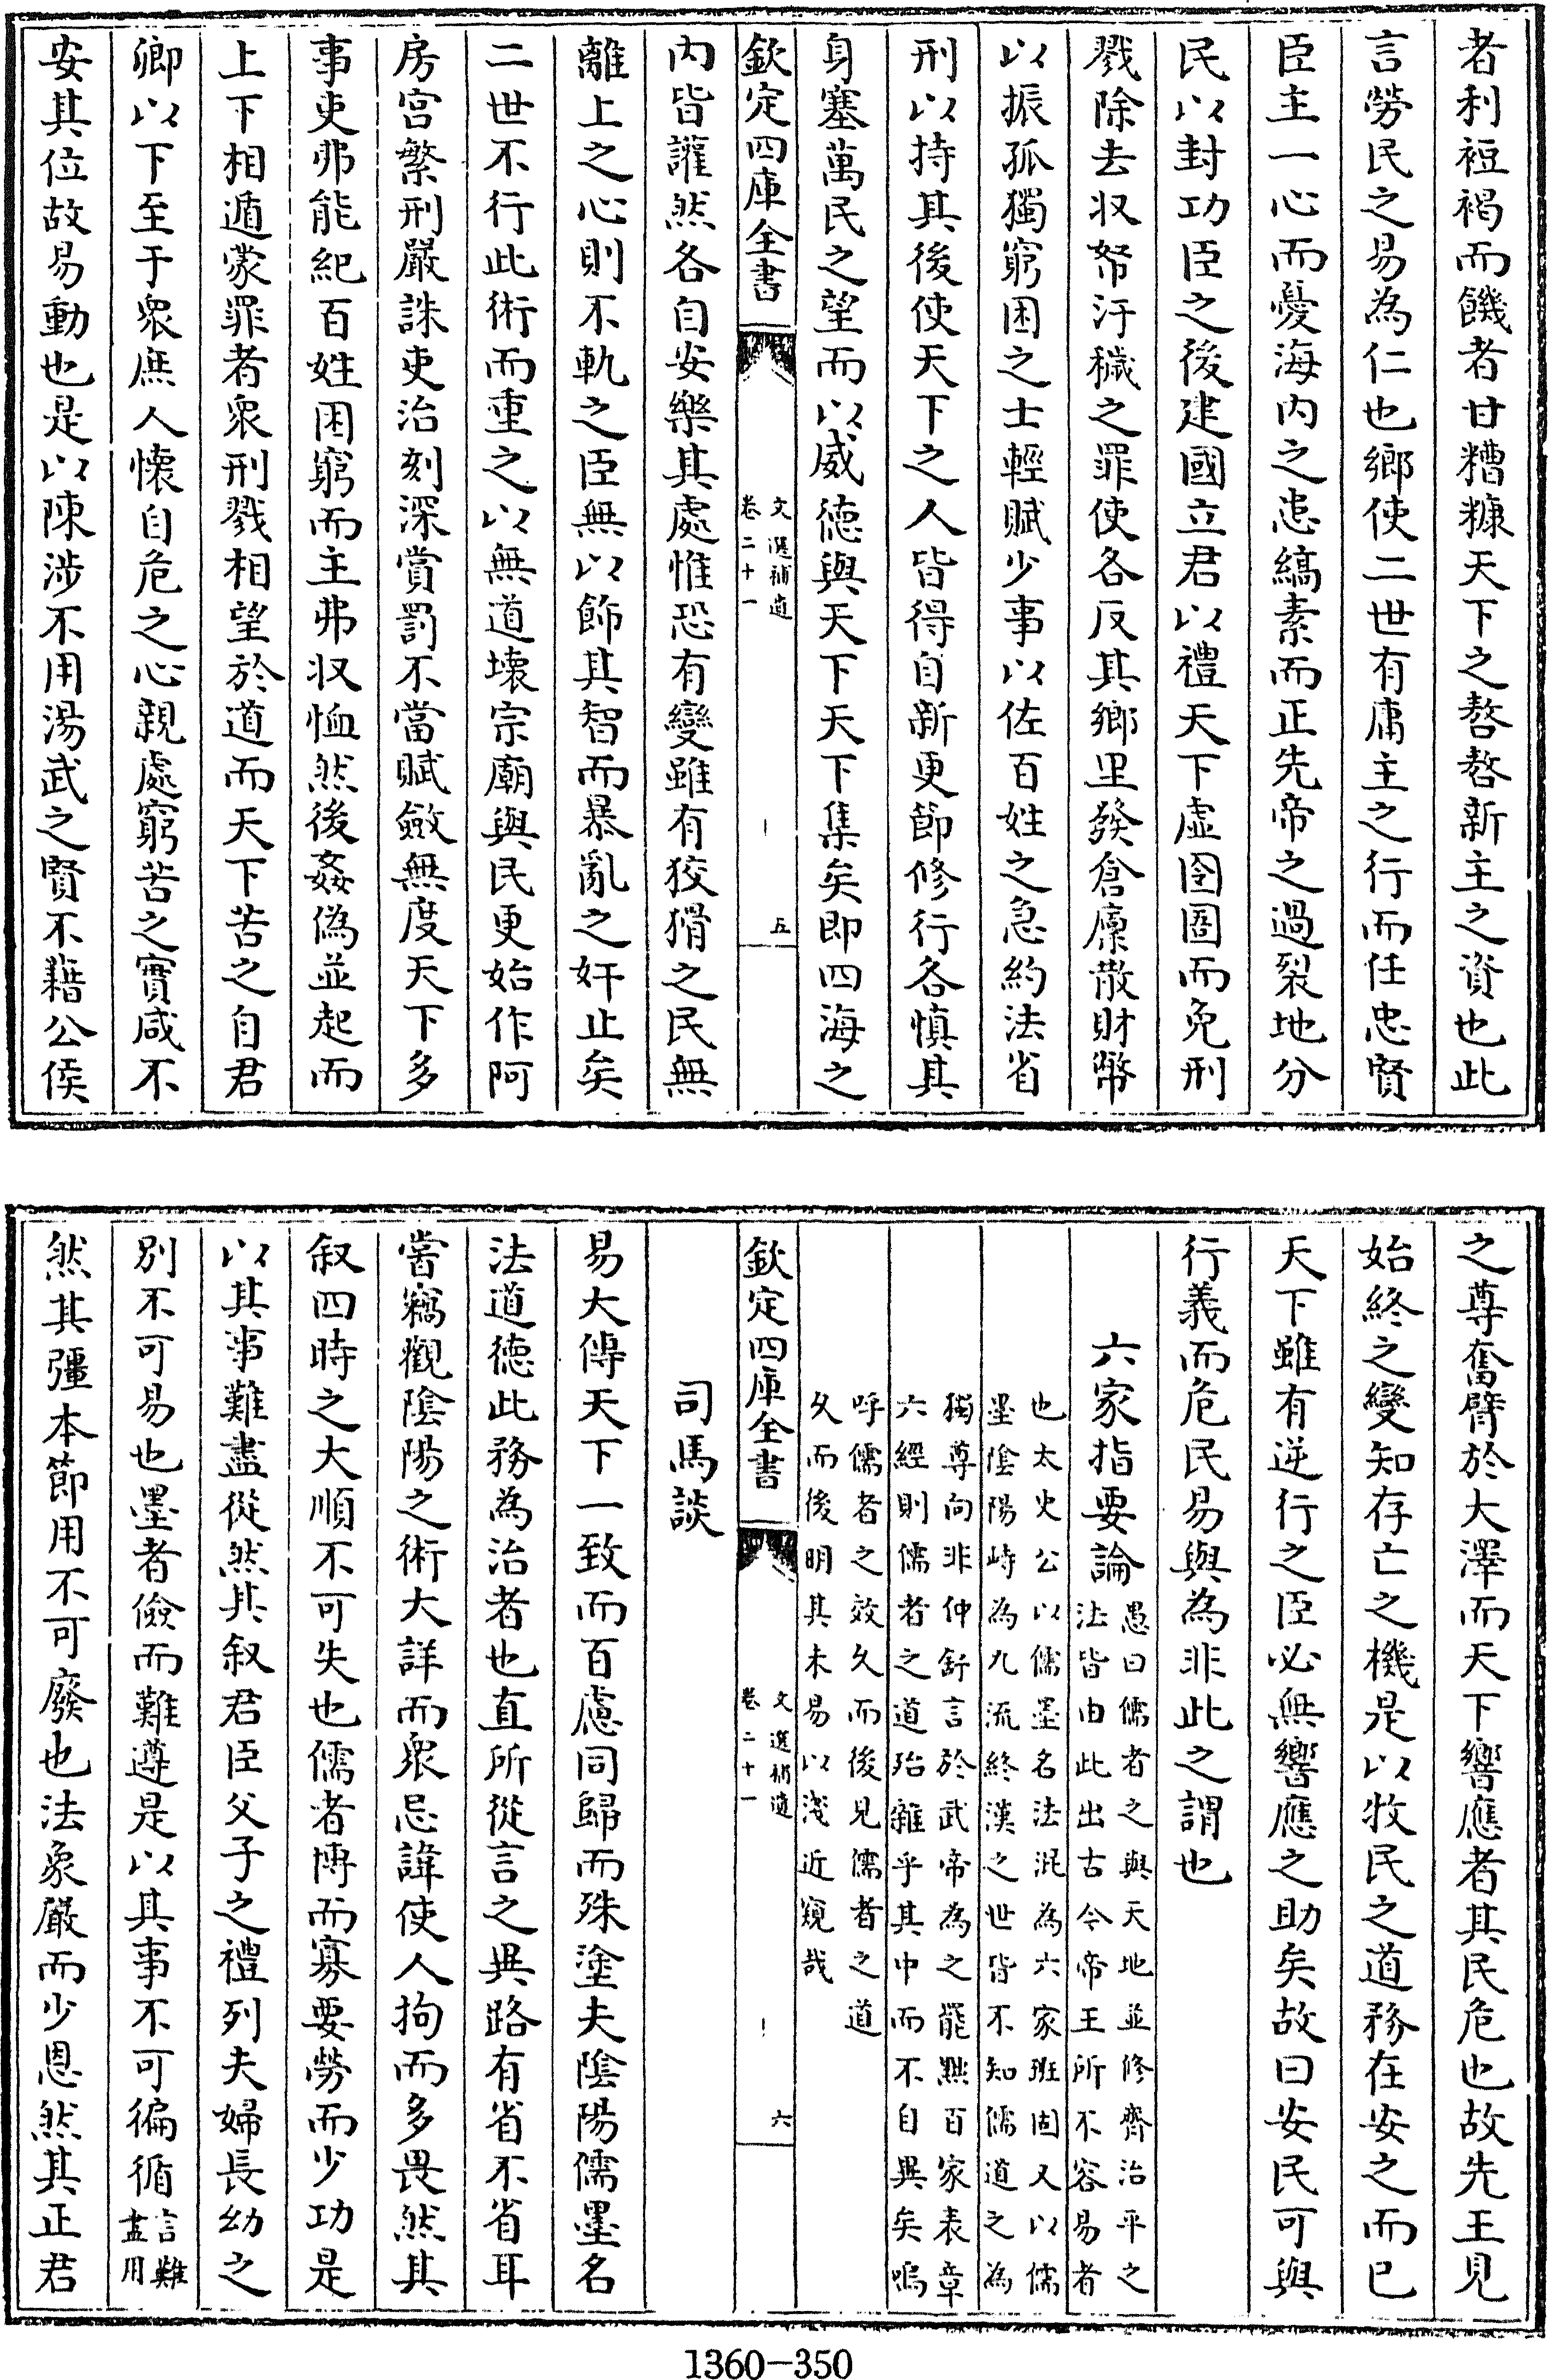 者利裋褐而饑者甘糟糠天下之嗸嗸新主之資也此
言勞民之易為仁也鄉使二世有庸主之行而任忠賢
臣主一心而憂海内之患縞素而正先帝之過裂地分
民以封功臣之後建國立君以禮天下虛囹圄而免刑
戮除去収帑汙穢之罪使各反其鄉里發倉廩散財幣
以振孤獨窮困之士輕賦少事以佐百姓之急約法省
刑以持其後使天下之人皆得自新更節修行各慎其
身塞萬民之望而以威德與天下天下集矣即四海之
欽定四庫全書
文選補遺
卷二十一
五
内皆讙然各自安樂其處惟恐有變雖有狡猾之民無
離上之心則不軌之臣無以飾其智而暴亂之奸止矣
二世不行此術而重之以無道壊宗廟與民更始作阿
房宫繁刑嚴誅吏治刻深賞罰不當賦斂無度天下多
事吏弗能紀百姓困窮而主弗収恤然後姦偽並起而
上下相遁蒙罪者衆刑戮相望於道而天下苦之自君
卿以下至于衆庶人懷自危之心親處窮苦之實咸不
安其位故易動也是以陳涉不用湯武之賢不藉公侯
之尊奮臂於大澤而天下響應者其民危也故先王見
始終之變知存亡之機是以牧民之道務在安之而已
天下雖有逆行之臣必無響應之助矣故曰安民可與
行義而危民易與為非此之謂也
六家指要論
愚曰儒者之與天地並修齊治平之
法皆由此出古今帝王所不容易者
也太史公以儒墨名法混為六家班固又以儒
墨陰陽峙為九流終漢之世皆不知儒道之為
獨尊向非仲舒言於武帝為之罷黜百家表章
六經則儒者之道殆雜乎其中而不自異矣嗚
呼儒者之效久而後見儒者之道
久而後明其未易以淺近窺哉
欽定四庫全書
文選補遺
卷二十一
六
司馬談
易大傳天下一致而百慮同歸而殊塗夫陰陽儒墨名
法道德此務為治者也直所從言之異路有省不省耳
嘗竊觀陰陽之術大詳而衆忌諱使人拘而多畏然其
叙四時之大順不可失也儒者博而寡要勞而少功是
以其事難盡從然其叙君臣父子之禮列夫婦長幼之
别不可易也墨者儉而難遵是以其事不可徧循
言難
盡用
然其彊本節用不可廢也法象嚴而少恩然其正君
1360-350